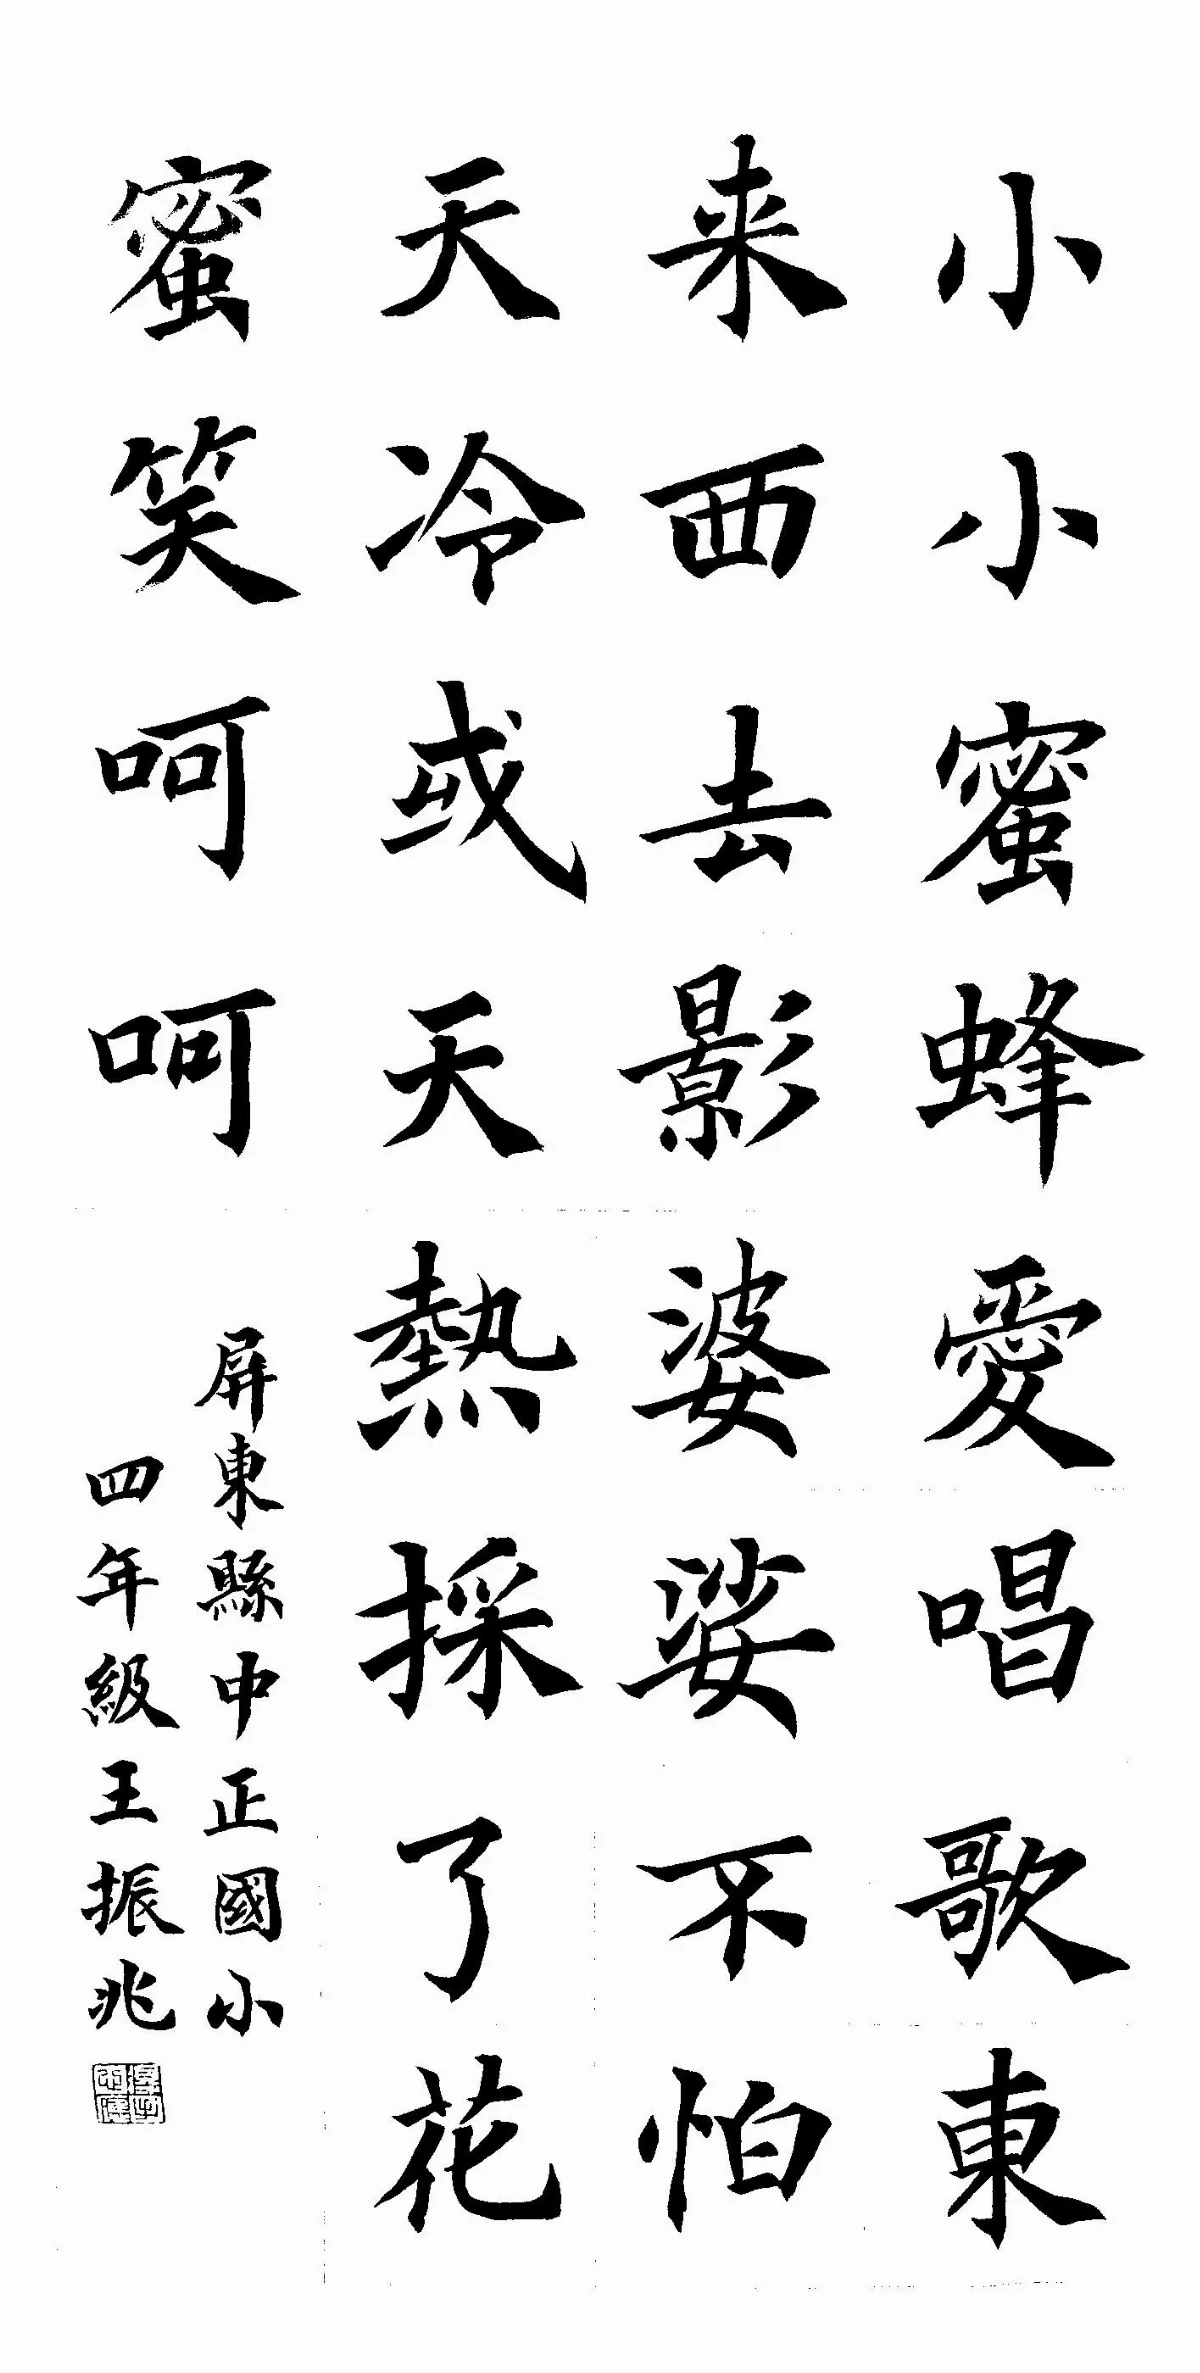 小小蜜蜂愛唱歌東
来西去影婆娑不怕
天冷或天熱採了花
蜜笑呵呵
屏東縣中正國小
四年級王振兆